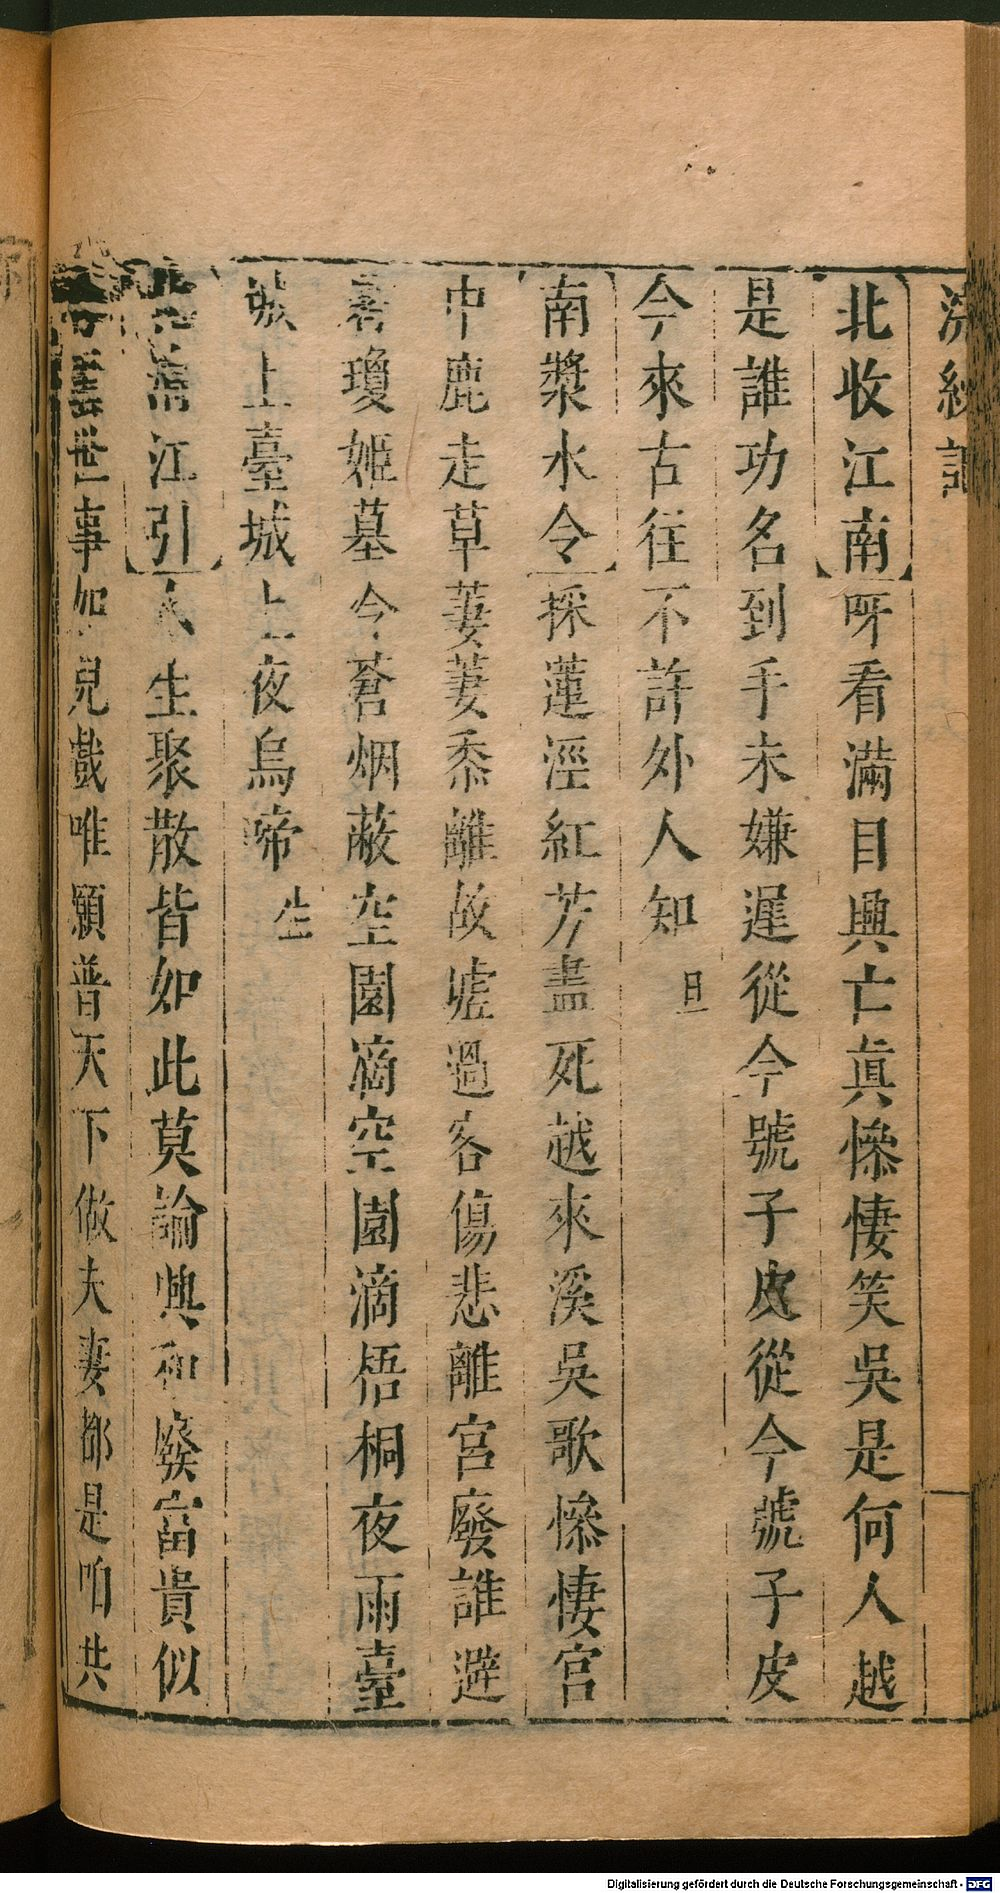 浣紗記
北收江南呀看滿目興亡真慘悽笑吳是何人越
是誰功名到手未嫌遲從今號子皮從今號子皮
今來古往不許外人知 旦
南漿水令採蓮涇紅芳盡死越來溪吳歌慘悽宮
中鹿走草萋萋黍離故墟過客傷悲離宮廢誰避
暑瓊姬墓今蒼烟蔽空園滴空園滴梧桐夜雨臺
城上臺城上夜烏啼 生
清江引人生聚散皆如此莫論興和廢富貴似
雲世事如兒戲唯願普天下做夫妻都是咱共
Digitalisierung gefördert durch die Deutsche Forschungsgemeinschaft - DFG